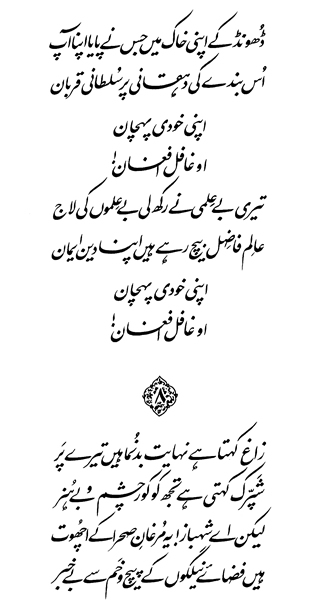 ڈُھونڈ کے اپنی خاک میں جس نے پایا اپنا آپ
اُس بندے کی دہقانی پر سُلطانی قربان
اپنی خودی پہچان
او غافل افغان!
تیری بے عِلمی نے رکھ لی بے عِلموں کی لاج
عالِم فاضِل بیچ رہے ہیں اپنا دین ایمان
اپنی خودی پہچان
او غافل افغان!
۸
زاغ کہتا ہے نہایت بدنُما ہیں تیرے پَر
شپّرک کہتی ہے تجھ کو کور چشم و بے ہُنر
لیکن اے شہباز! یہ مُرغانِ صحرا کے اچھُوت
ہیں فضائے نیلگوں کے پیچ و خَم سے بے خبر